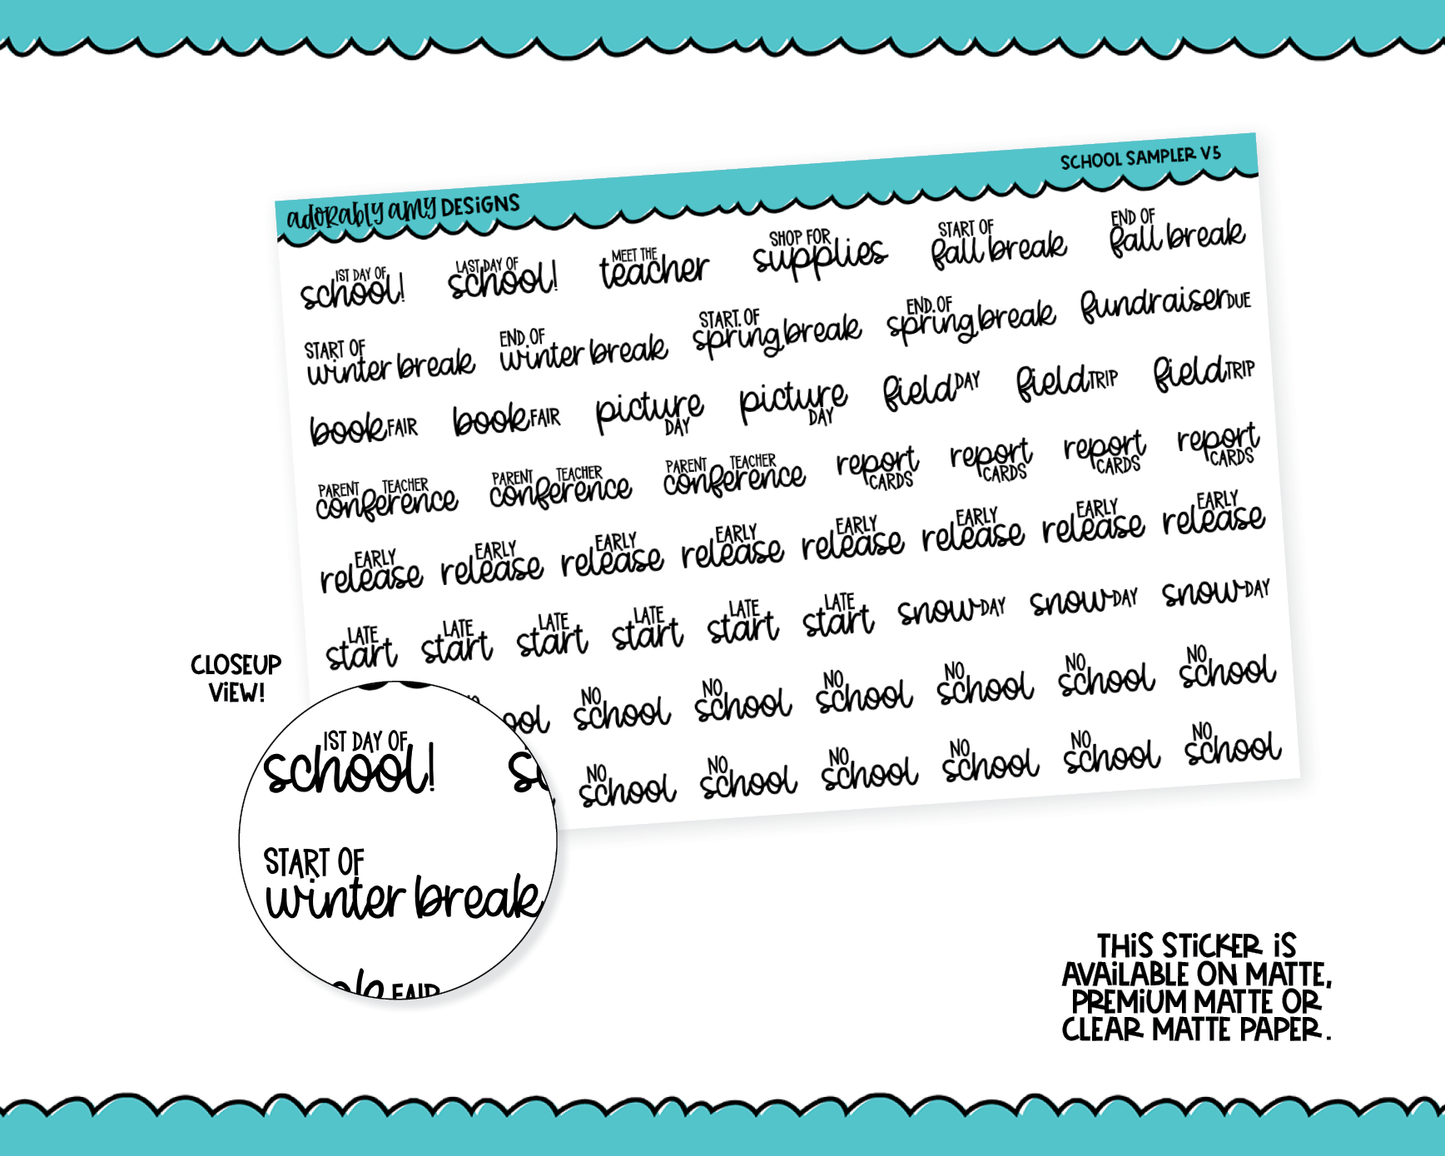 adorably amy DESiGNS
SCHOOL SAMPLER V5
1ST DAY OF school! LAST DAY OF school! MEET THE teacher SHOP FOR supplies START OF fall break END OF fall break
START OF winter break END OF winter break START OF spring break END OF spring break fundraiser DUE
book FAIR book FAIR picture DAY picture DAY field DAY field TRIP field TRIP
PARENT TEACHER conference PARENT TEACHER conference PARENT TEACHER conference report CARDS report CARDS report CARDS report CARDS
EARLY release EARLY release EARLY release EARLY release EARLY release EARLY release EARLY release EARLY release
LATE start LATE start LATE start LATE start LATE start LATE start snow DAY snow DAY snow DAY
NO school NO school NO school NO school NO school NO school
NO school NO school NO school NO school NO school NO school
CLOSEUP
ViEW!
1ST DAY OF
school!
START OF
winter break
FAIR
THiS STiCKER iS
AVAiLABLE ON MATTE,
PREMiUM MATTE OR
CLEAR MATTE PAPER.